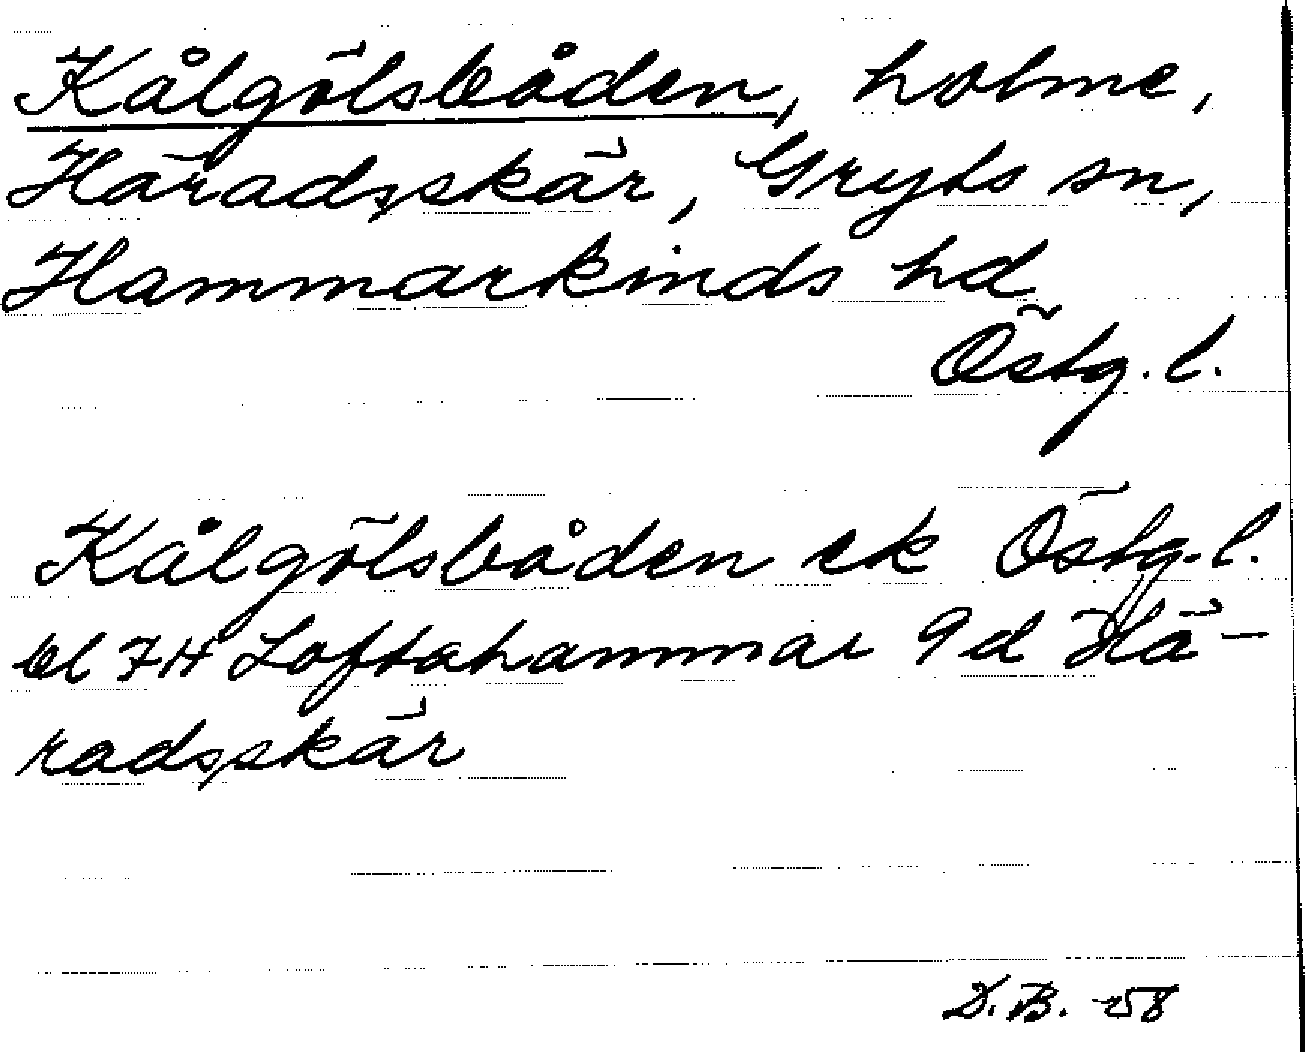 Kålgölsbåden, holme,
Häradsskär, Gryts sn,
Hammarkinds hd
Östg. l.
Kålgölsbåden ek Östg. l.
bl 7H Loftahammar 9d Hä-
radsskär
D.B. -58